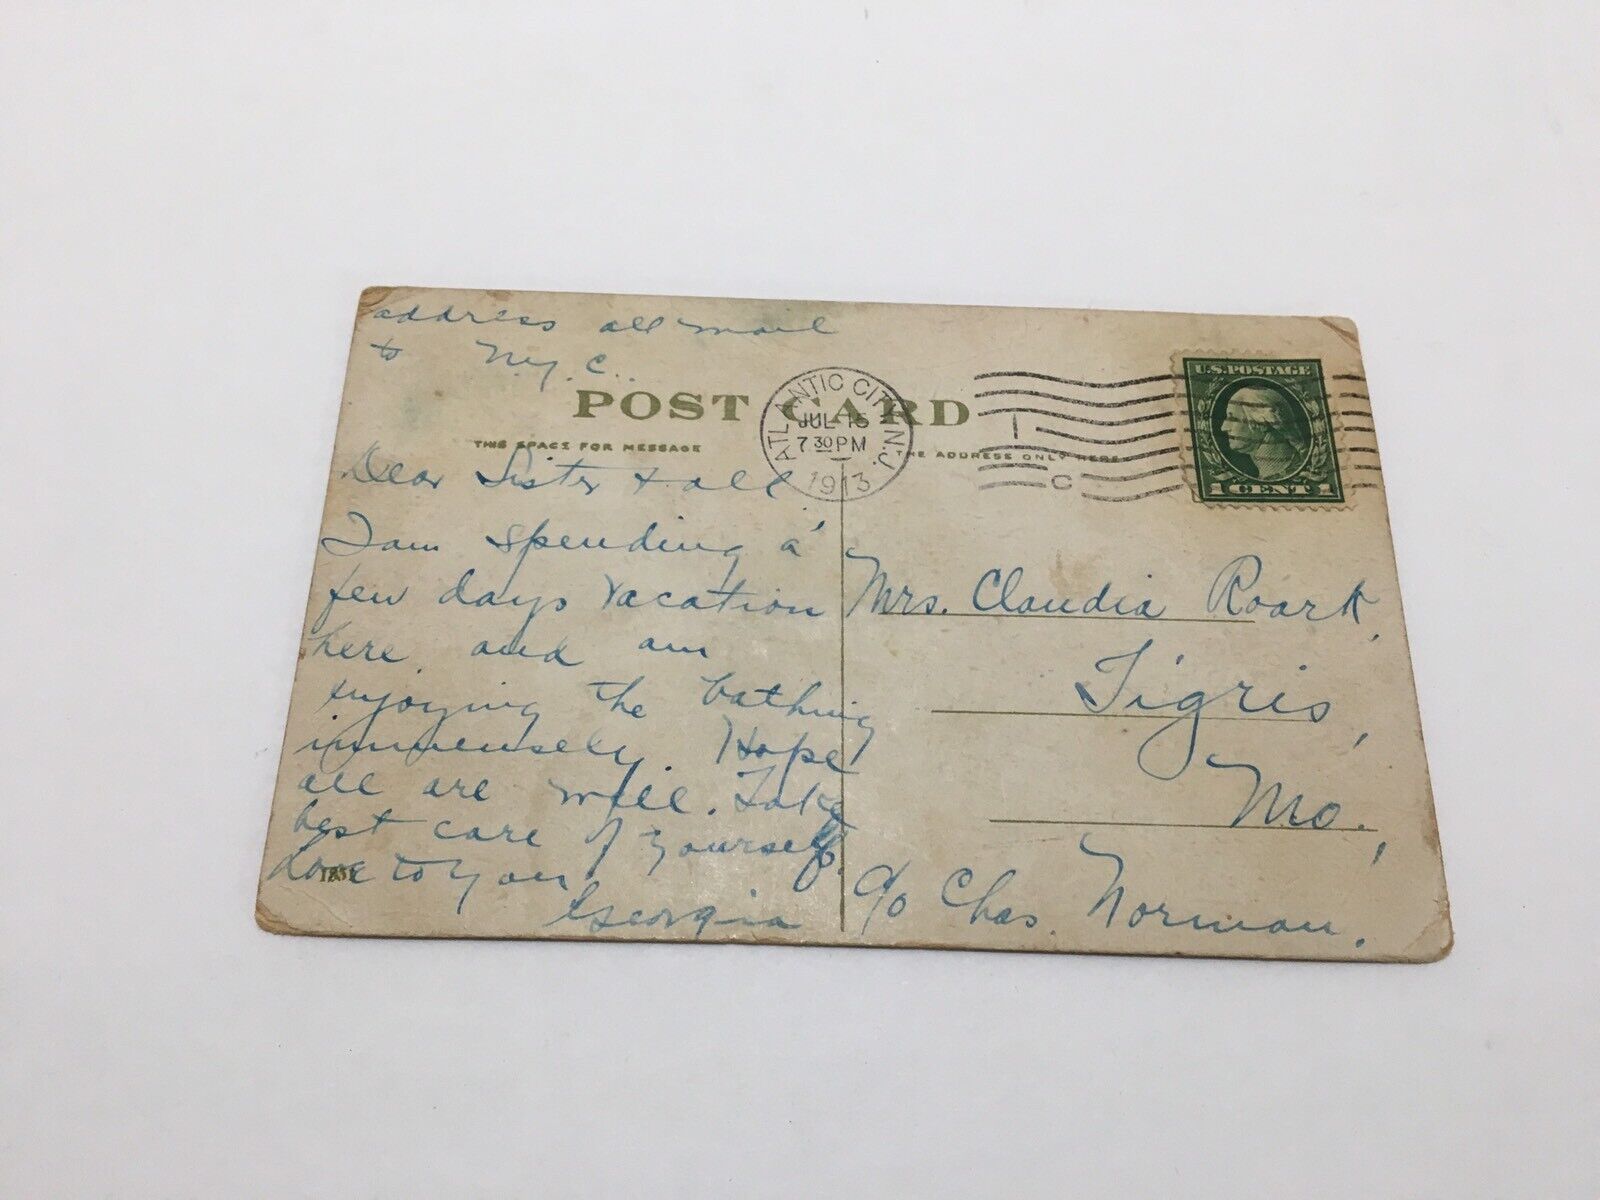 address all mail
to N.Y.C.
POST CARD
THIS SPACE FOR MESSAGE
THE ADDRESS ONLY HERE
ATLANTIC CITY, N.J.
JUL 15
7 30 PM
1913
1
C
U.S. POSTAGE
1 CENT 1
Dear Sister & all
I am spending a
few days vacation
here, and am
enjoying the bathing
immensely. Hope
all are well. Take
best care of yourself.
Love to you
Georgia
Mrs. Claudia Roark,
Tigris,
Mo.,
c/o Chas. Norman.